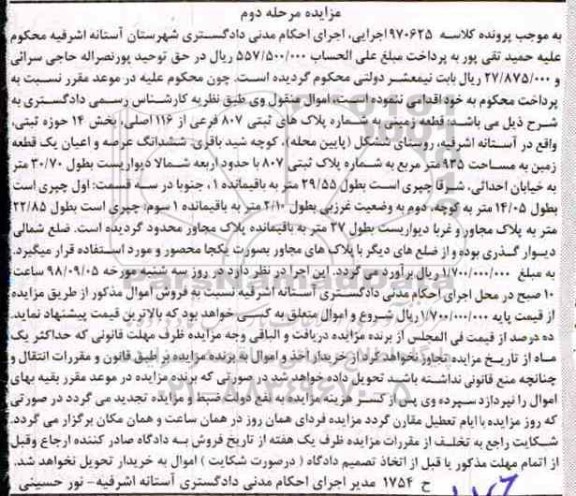 مزایده مرحله دوم
به موجب پرونده کلاسه ۹۷۰۶۲۵اجرایی، اجرای احکام مدنی دادگستری شهرستان آستانه اشرفیه محکوم
علیه حمید تقی پور به پرداخت مبلغ علی الحساب ۵۵۷/۵۰۰/۰۰۰ ریال در حق توحید پورنصراله حاجی سرائی
و ۲۷/۸۷۵/۰۰۰ریال بابت نیمعشر دولتی محکوم گردیده است. چون محکوم علیه در موعد مقرر نسبت به
پرداخت محکوم به خود اقدامی ننموده است، اموال منقول وی طبق نظریه کارشناس رسمی دادگستری به
شرح ذیل می باشد: قطعه زمینی به شماره پلاک های ثبتی ۸۰۷ فرعی از ۱۱۶ اصلی، بخش ۱۴ حوزه ثبتی،
واقع در آستانه اشرفیه، روستای ششکل (پایین محله)، کوچه شید باقری. ششدانگ عرصه و اعیان یک قطعه
زمین به مساحت ۹۳۵ متر مربع به شماره پلاک ثبتی ۸۰۷ با حدود اربعه شمالا دیواریست بطول ۳۰/۷۰ متر
به خیابان احداثی. شرقا چپری است بطول ۲۹/۵۵ متر به باقیمانده ۱ ، جنوبا در سه قسمت: اول چپری است
بطول ۱۴/۰۵ متر به کوچه، دوم به وضعیت غرزیی بطول ۲/۱۰ متر به باقیمانده ۱ سوم: چپری است بطول ۲۲/۸۵
متر به پلاک مجاور و غربا دیواریست بطول ۲۷ متر به باقیمانده پلاک مجاور محدود گردیده است. ضلع شمالی
دیوار گذری بوده و از ضلع های دیگر با پلاک های مجاور بصورت یکجا محصور و مورد استفاده قرار میگیرد.
به مبلغ ۱/۷۰۰/۰۰۰/۰۰۰ ریال برآورد می گردد. این اجرا در نظر دارد در روز سه شنبه مورخه ۹۸/۰۹/۰۵ ساعت
۱۰ صبح در محل اجرای احکام مدنی دادگستری آستانه اشرفیه نسبت به فروش اموال مذکور از طریق مزایده
از قیمت پایه ۱/۷۰۰/۰۰۰/۰۰۰ ریال شروع و اموال متعلق به کسی خواهد بود که بالاترین قیمت پیشنهاد نماید.
ده درصد از قیمت فی المجلس از برنده مزایده دریافت و الباقی وجه مزایده ظرف مهلت قانونی که حداکثر یک
ماه از تاریخ مزایده تجاوز نخواهد کرد از خریدار اخذ و اموال به برنده مزایده بر طبق قانون و مقررات انتقال و
چنانچه منع قانونی نداشته باشید تحویل داده خواهد شد. در صورتی که برنده مزایده در موعد مقرر بقیه بهای
اموال را نپردازد سپرده وی پس از کسر هزینه مزایده به نفع دولت ضبط و مزایده تجدید می گردد در صورتی
که روز مزایده با ایام تعطیل مقارن گردد مزایده فردای همان روز در همان ساعت و همان مکان برگزار می گردد.
شکایت راجع به تخلف از مقررات مزایده ظرف یک هفته از تاریخ فروش به دادگاه صادر کننده ارجاع وقبل
از اتمام مهلت مذکور یا قبل از اتخاذ تصمیم دادگاه ( درصورت شکایت ) اموال به خریدار تحویل نخواهد شد.
ح ۱۷۵۴ مدیر اجرای احکام مدنی دادگستری آستانه اشرفیه- نور حسینی